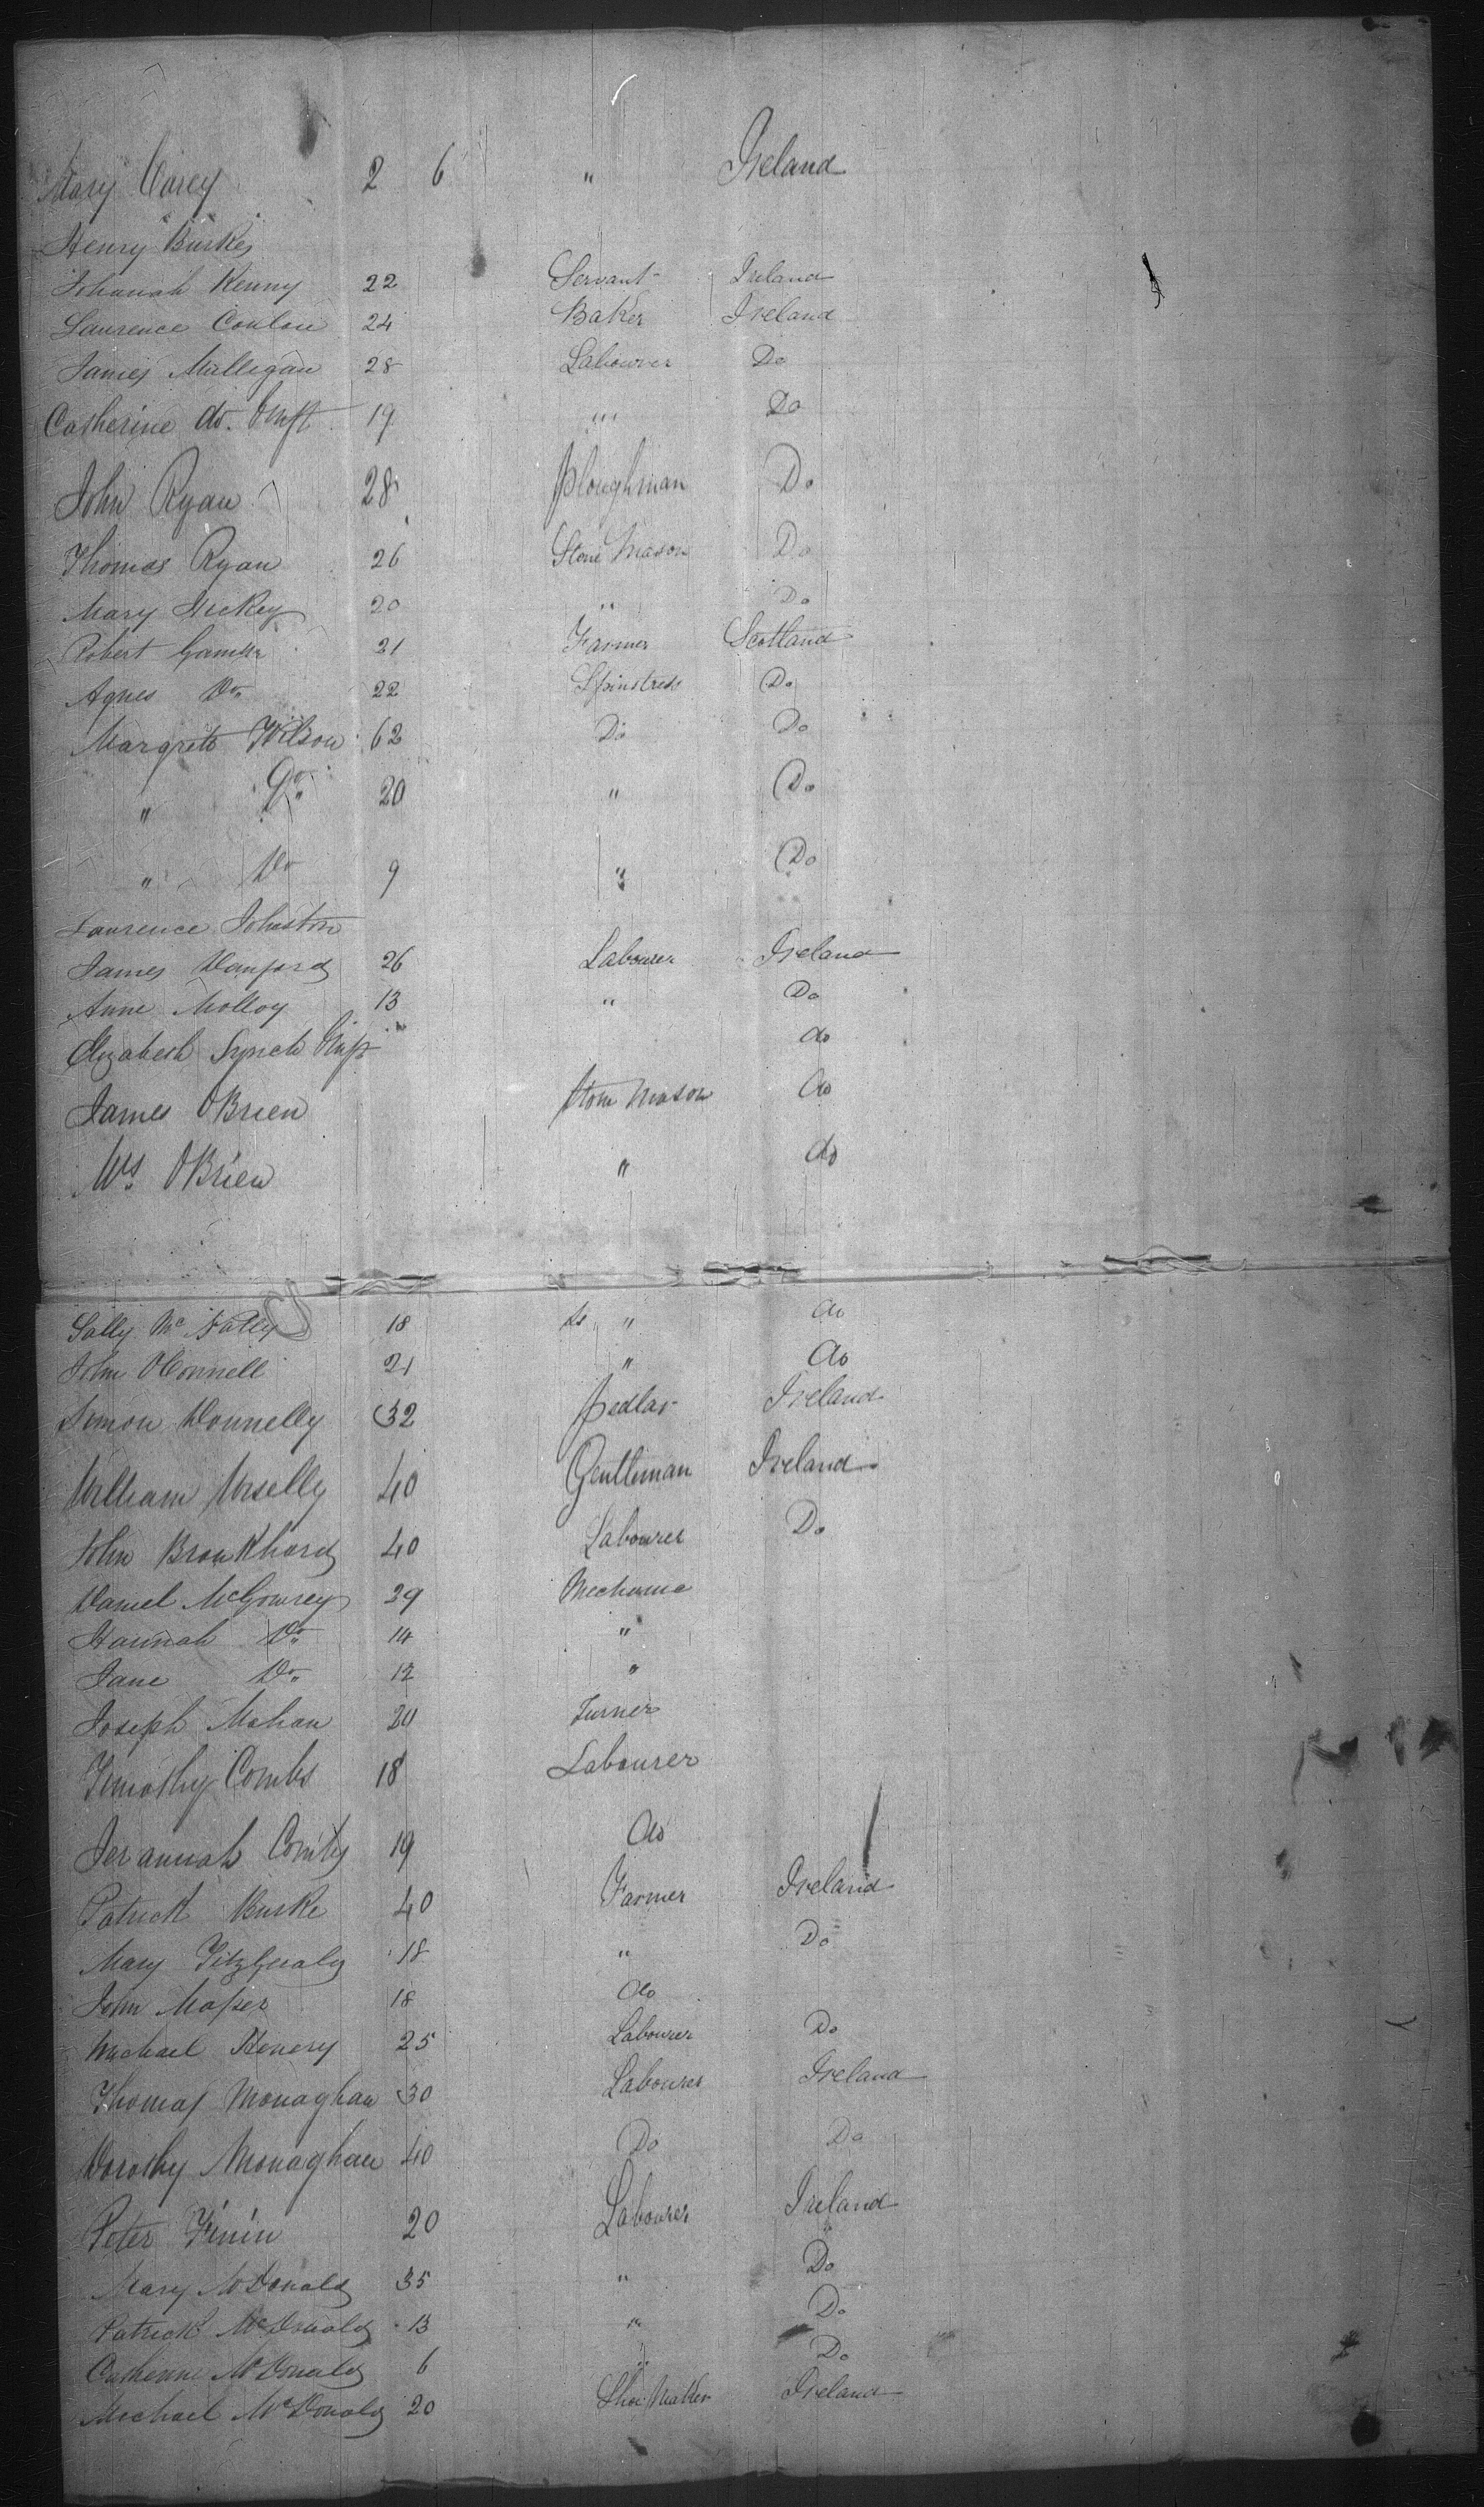 Mary Carey 2 6 " Ireland
Henry Burkes
Johanah Kenny 22 Servant Ireland
Laurence Conlon 24 Baker Ireland
James Mulligan 28 Labourer Do
Catherine do. 19 " Do
John Ryan 28 Ploughman Do
Thomas Ryan 26 Stone Mason Do
Mary Hickey 20 " Do
Robert 21 Farmer Scotland
Agnes Do. 22 Spinstress Do
Margrett Wilson 62 Do Do
" Do. 20 " Do
" Do 9 " Do
Laurence Johnston
James 26 Labourer Ireland
Anne Molloy 13 " Do
Elizabeth Lynch do
James OBrien Stone Mason do
Mrs OBrien " do
Sally Mc Nally 18 " do
John OConnell 21 " do
Simon Donnelly 32 Pedlar Ireland
William 40 Gentleman Ireland
John 40 Labourer Do
Daniel 29 Mechanic
Hannah Do. 14 "
Jane Do. 12 "
Joseph Mahan 20 Turner
Timothy Combs 18 Labourer
Jerannah Combs 19 do
Patrick Burke 40 Farmer Ireland
Mary Fitzgerald 18 " Do
John 18 do
Michael Henery 25 Labourer Do
Thomas Monaghan 30 Labourer Ireland
Dorothy Monaghan 40 Do Do
Peter Finin 20 Labourer Ireland
Mary McDonald 35 " Do
Patrick McDonald 13 " Do
Catherine McDonald 6 " Do
Michael McDonald 20 Shoe Maker Ireland